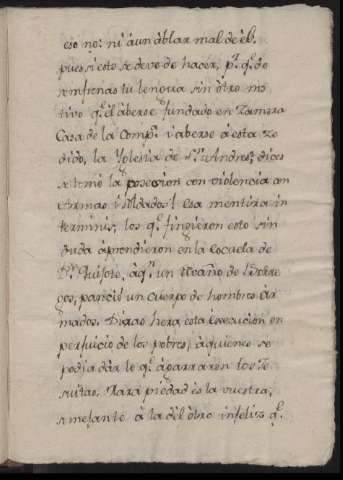 eso no: ni aun ablar mal de èl.
pues si esto se deve de hacer, pr. q.
tu lengua sin òtro mo
tivo q. èl àberse fundado en Zamora
Casa de la Comp.ª i aberse a esta ce
dido, la Yglesia de S.n Andres; dices
se tomò la posecion con violencia con
Armas, i soldados! esa mentira in
terminis, los q. fingieron esto sin
duda aprendieron en la escuela de
D.n Quijote, à q.n un Reaño de Borre
gos, pareciò un cuerpo de hombres ar
mados. Dirao hera esta execucion en
perjuicio de los pobres, à quienes se
podia dàr lo q. agarraron los Je
suitas. Rara piedad es la vuestra,
semejante à la del òtro infeliz q.